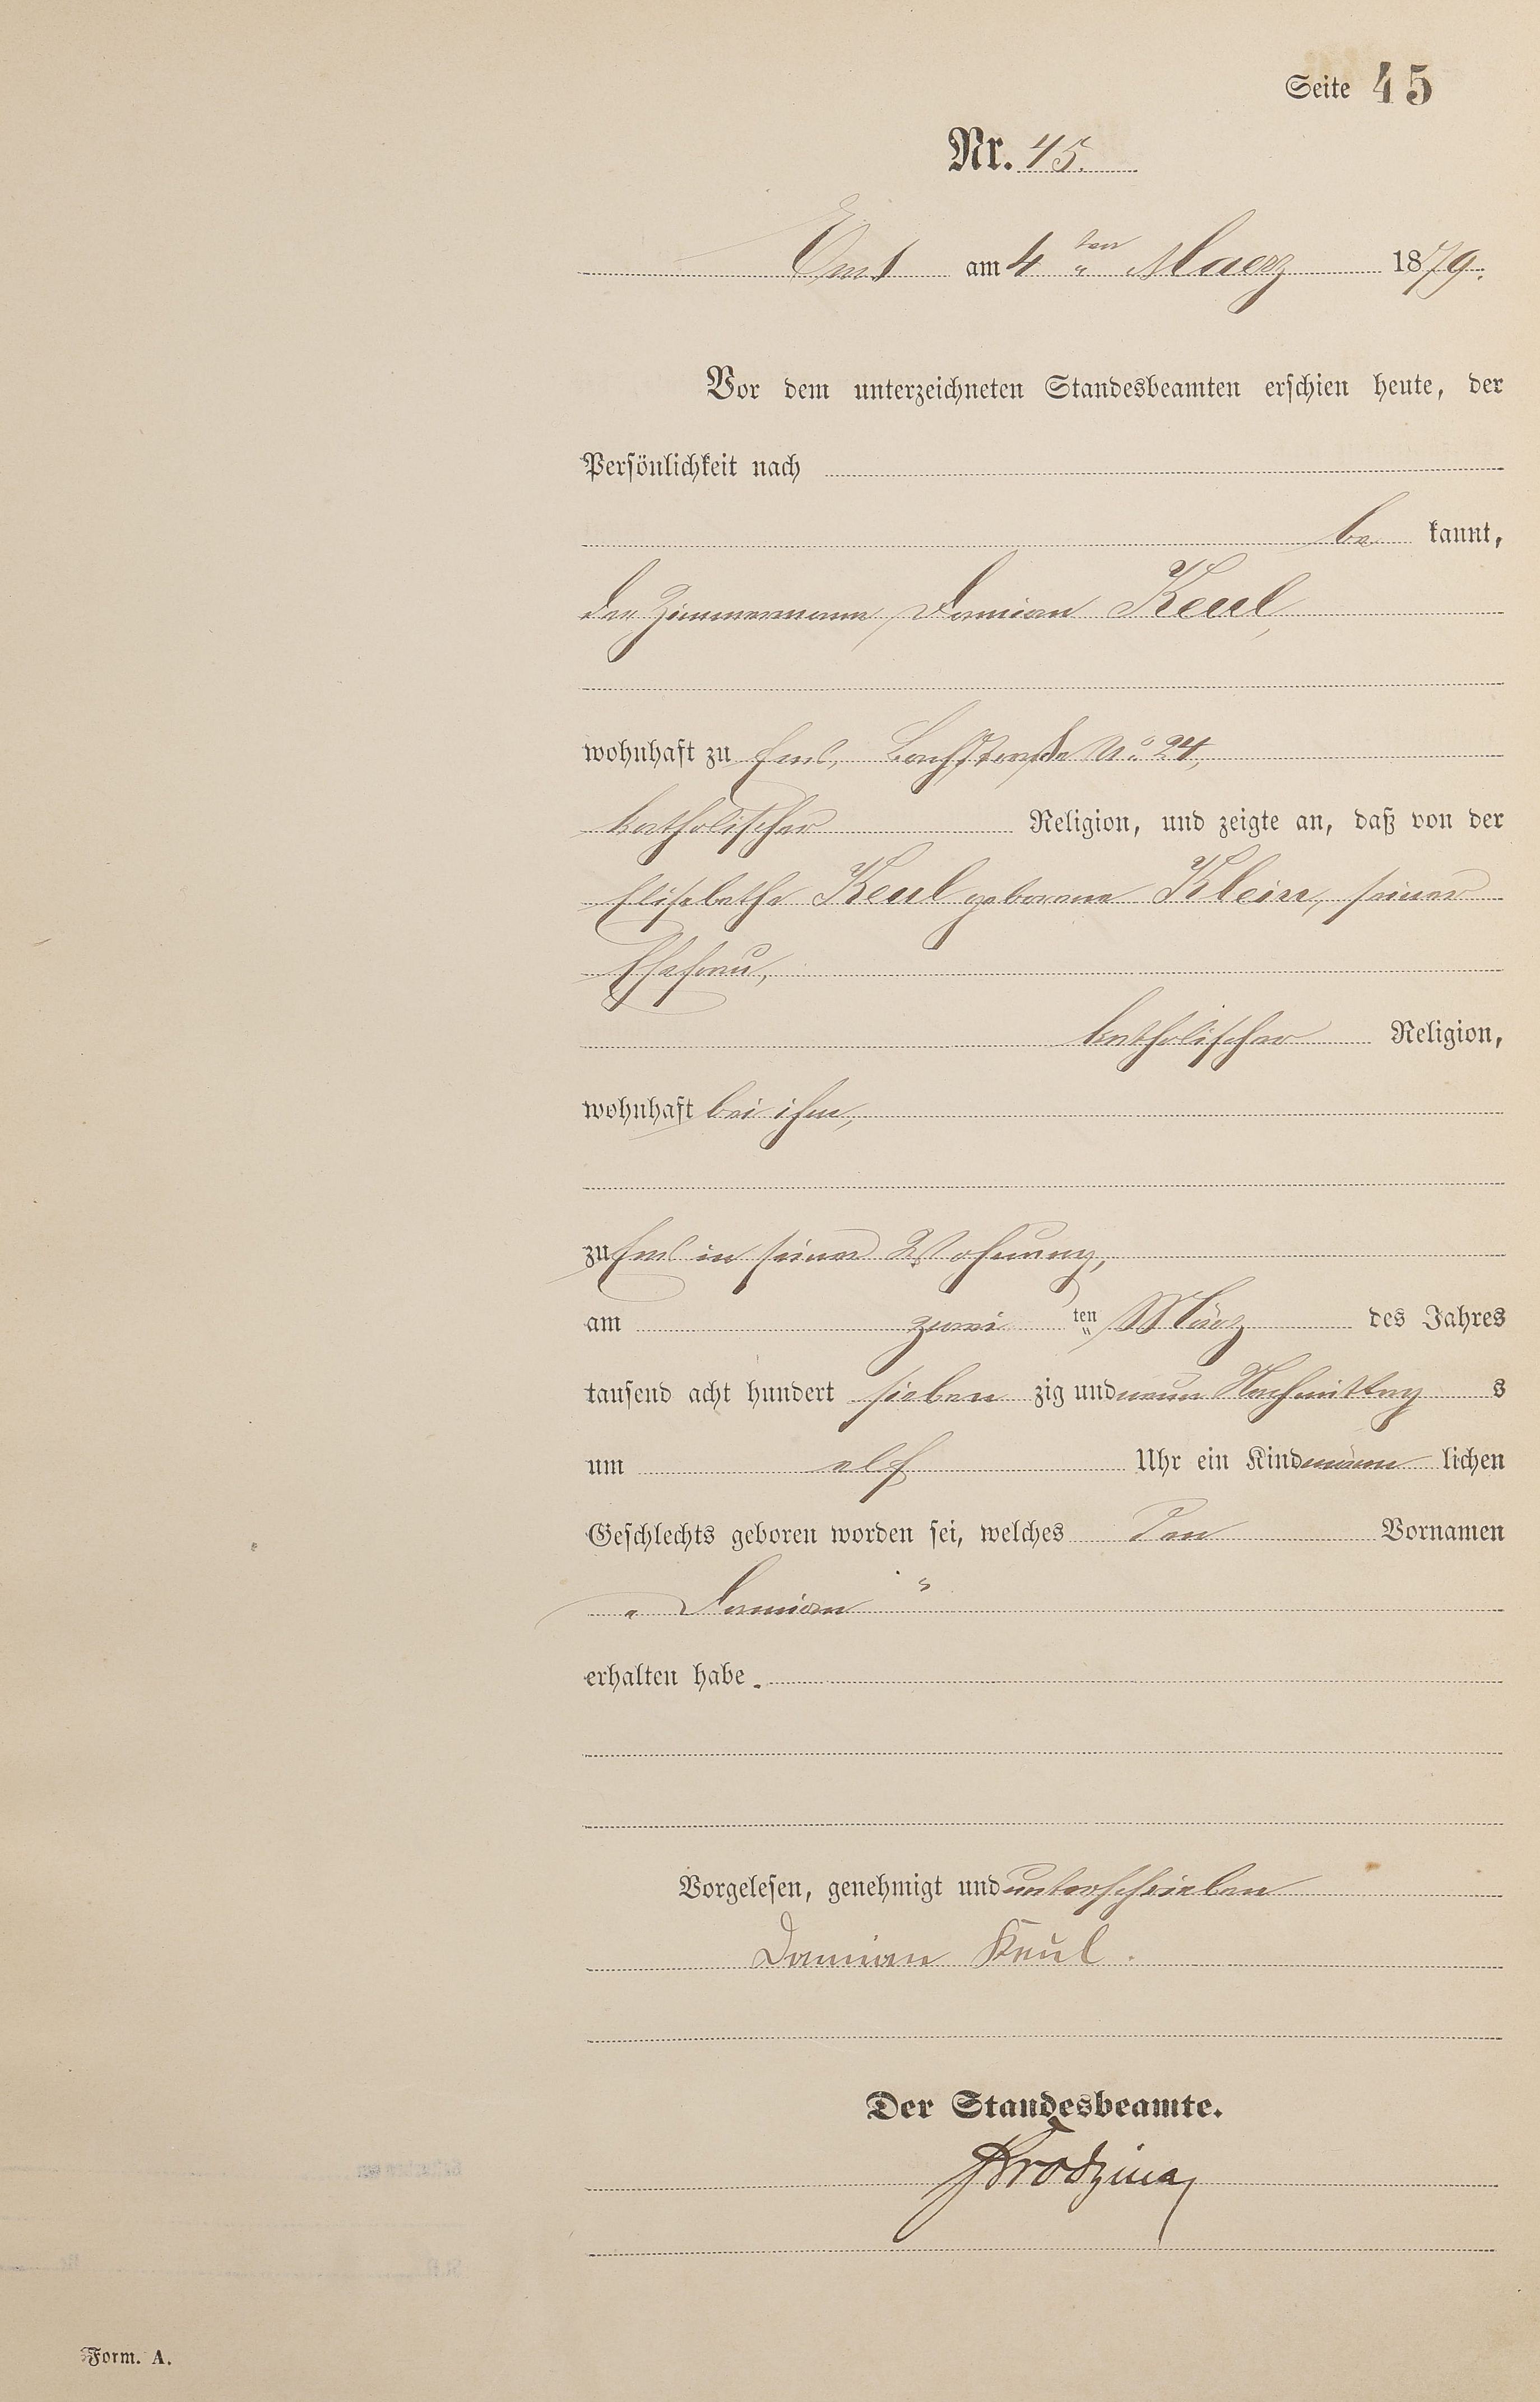 Seite 45
Nr. 45.
Ems am 4ten Maerz 1879.
Vor dem unterzeichneten Standesbeamten erschien heute, der
Persönlichkeit nach
be kannt,
der Zimmermann Damian Keul,
wohnhaft zu Ems, Bachstraße No. 24,
katholischer Religion, und zeigte an, daß von der
Elisabethe Keul geborene Klein, seiner
Ehefrau,
katholischer Religion,
wohnhaft bei ihm,
zu Ems in seiner Wohnung,
am zwei ten März des Jahres
tausend acht hundert sieben zig und neun Nachmittag s
um elf Uhr ein Kind männ lichen
Geschlechts geboren worden sei, welches den Vornamen
„Damian“
erhalten habe.
Vorgelesen, genehmigt und unterschrieben
Damian Keul.
Der Standesbeamte.
Form. A.